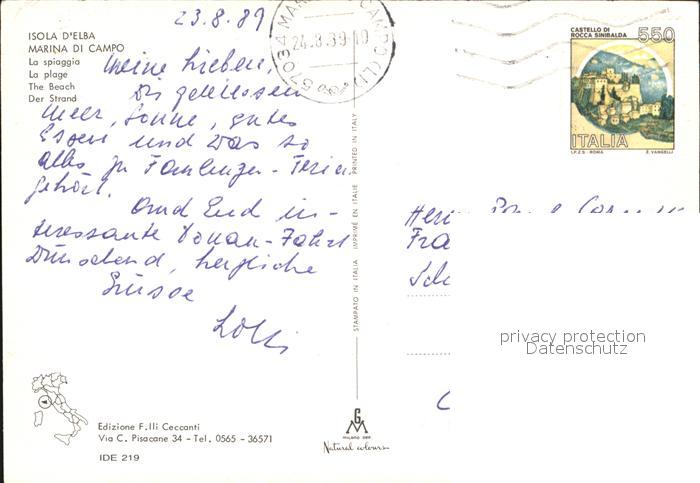 23.8.89
ISOLA D'ELBA
MARINA DI CAMPO
La spiaggia
La plage
The Beach
Der Strand
Meine Lieben,
Meer, Sonne, gutes
Essen und was so
alles zu Faulenzer-Ferien
gehört.
Und Euch in-
teressante Donau-Fahrt
wünschend, herzliche
Grüsse
57034 MARINA CAMPO (LI)
24.8.89-10
CASTELLO DI
ROCCA SINIBALDA
550
ITALIA
I.P.Z.S. - ROMA E. VANGELLI
STAMPATO IN ITALIA IMPRIMÉ EN ITALIE PRINTED IN ITALY
Fra
privacy protection
Datenschutz
Edizione F.lli Ceccanti
Via C. Pisacane 34 - Tel. 0565 - 36571
IDE 219
GM
Natural colours